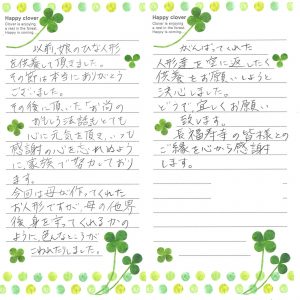 Happy clover
Clover is enjoying
a rest in the forest.
Happy is coming.
以前、娘のひな人形
を供養して頂きました。
その節は本当にありがとう
ございました。
その後に頂いた、お尚の
おもしろ法話もとても
心に元気を頂き、いつも
感謝の心を忘れぬよう
に、家族で努力しており
ます。
今回は母が作ってくれた
お人形ですが、母の他界
後、身を守ってくれるかの
ように、色んなところが
こわれたりしました。
Happy clover
Clover is enjoying
a rest in the forest.
Happy is coming.
がんばってくれた
人形達を空に返したく
供養をお願いしようと
決心しました。
どうぞ、宜しくお願い
致します。
長福寿寺の皆様との
ご縁を心から感謝
します。